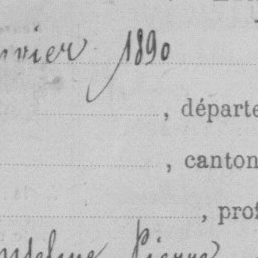 nvier 1890
, départe
, canton
, prof
Pierre